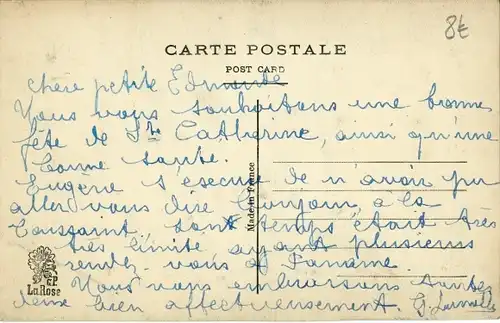 8€
CARTE POSTALE
POST CARD
chère petite Edmonde
Nous vous souhaitons une bonne
fête de Ste Catherine, ainsi qu'une
bonne santé.
Eugène s'excuse de n'avoir pu
aller vous dire bonjour à la
Toussaint, son temps était très
très limité ayant plusieurs
rendez-vous à Paname.
Nous vous embrassons toutes
deux bien affectueusement G.
Made in France
EP
LaRose